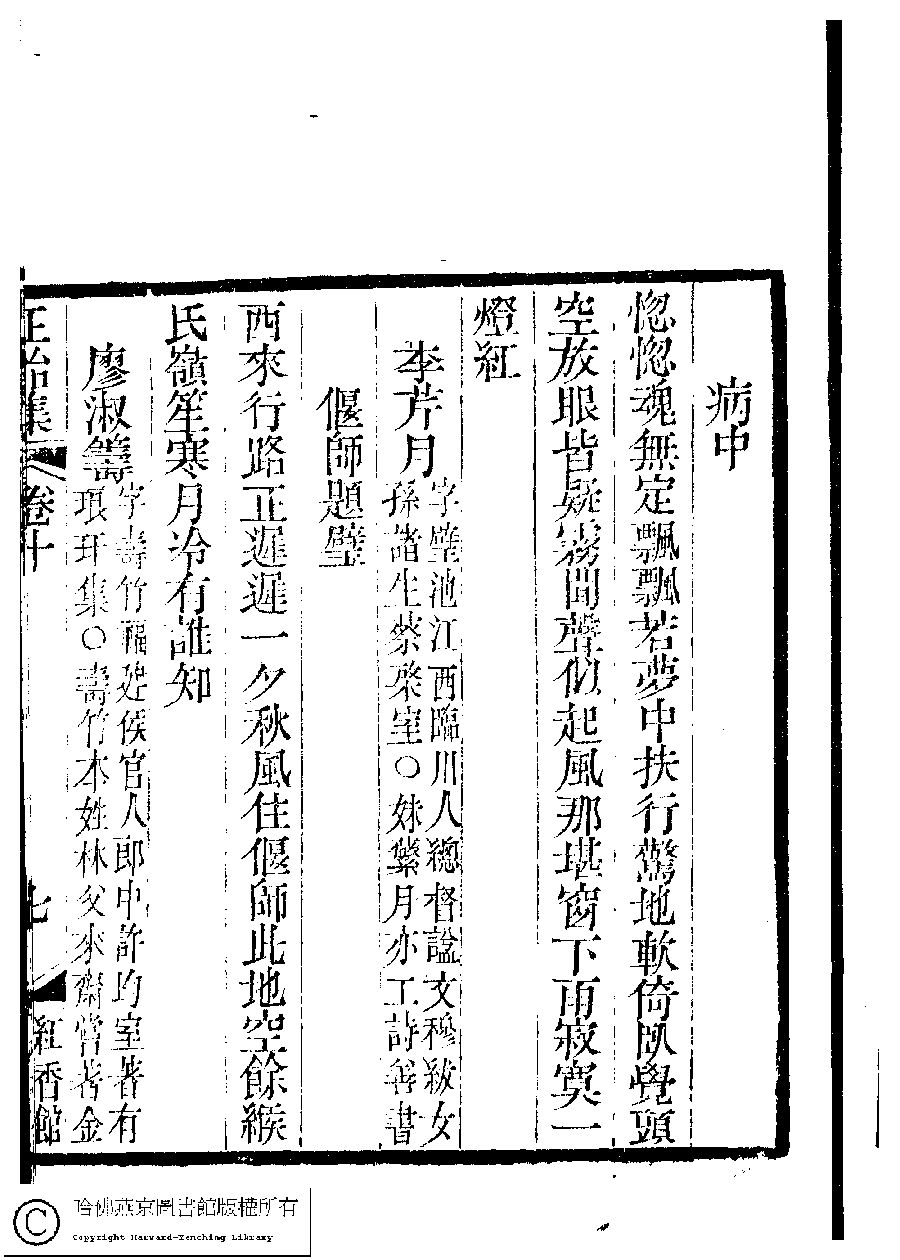 病中
惚惚魂無定飄飄若夢中扶行驚地軟倚臥覺頭
空放眼皆疑霧聞聲似起風那堪窗下雨寂寞一
燈紅
李芹月
字壁池江西臨川人總督諡文穆紱女
孫諸生蔡梁室○妹蘩月亦工詩善書
偃師題壁
西來行路正遲遲一夕秋風住偃師此地空餘緱
氏嶺笙寒月冷有誰知
廖淑籌
字壽竹福建侯官人郎中許均室著有
琅玕集○壽竹本姓林父來齋嘗著金
正始集
卷十
七
紅香館
哈佛燕京圖書館版權所有
Copyright Harvard-Yenching Library